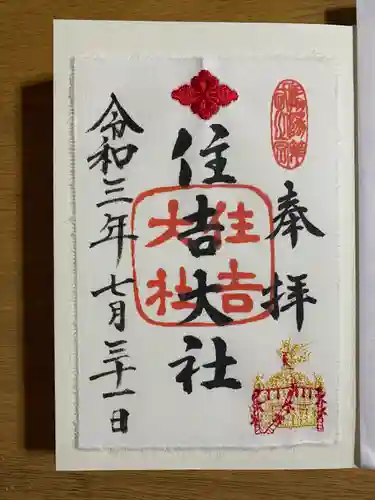 奉拝
住吉大社
住吉大社
令和三年七月三十一日